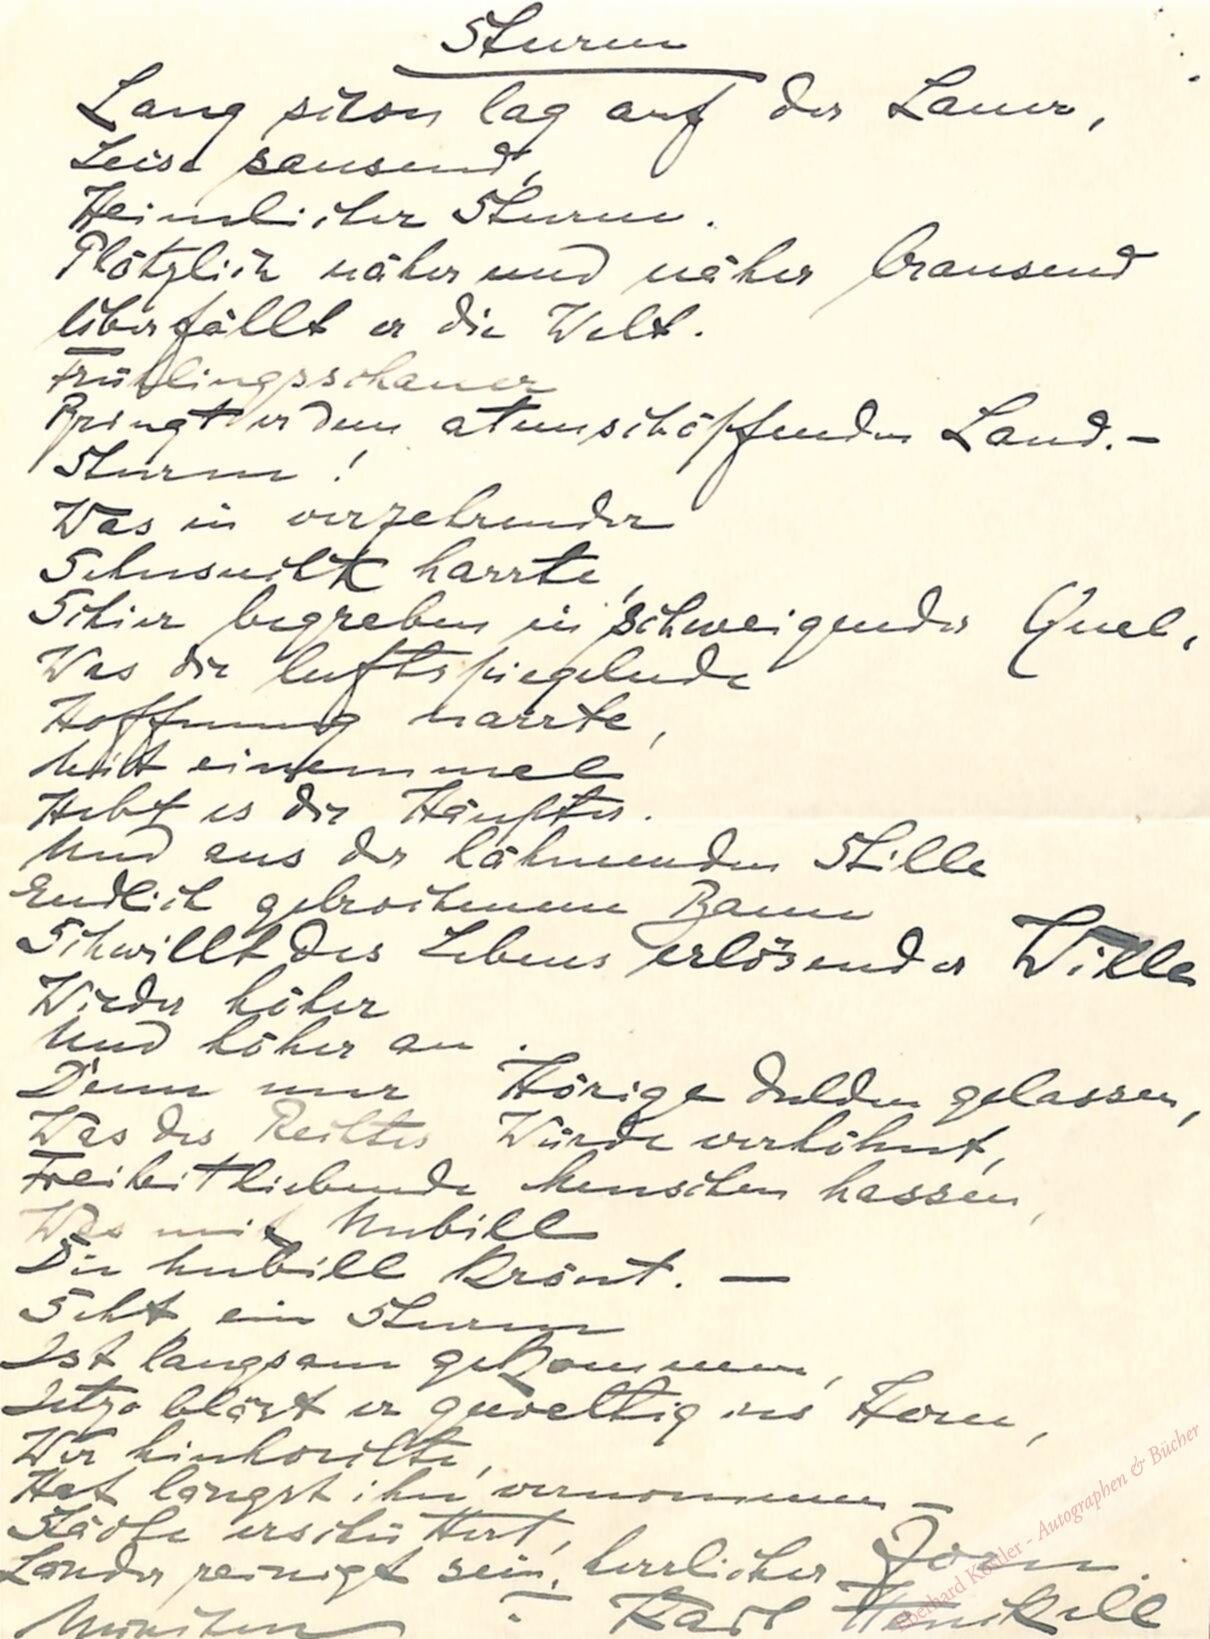 Sturm
Lang schon lag auf der Lauer,
Leise sausend,
Heimlicher Sturm.
Plötzlich näher und näher brausend
Überfällt er die Welt.
Frühlingsschauer
Bringt er dem atemschöpfenden Land. –
Sturm!
Was in verzehrender
Sehnsucht harrte,
Schier begraben in schweigender Qual,
Was die luftspiegelnde
Hoffnung narrte,
Mit einemmal
Hebt es die Häupter.
Und aus der lähmenden Stille
Endlich gebrochenem Bann
Schwillt des Lebens erlösender Wille
Wieder höher
Und höher an.
Denn nur Hörige dulden gelassen,
Was des Rechtes Würde verhöhnt,
Freiheitliebende Menschen hassen,
Was mit Unbill
Die Unbill krönt. —
Seht, ein Sturm
Ist langsam gekommen,
Jetzo bläst er gewaltig ins Horn,
Wer hinhorchte,
Hat längst ihn vernommen –
Städte erschüttert,
Länder reinigt sein herrlicher Zorn.
München Karl Henckell
Eberhard Köstler - Autographen & Bücher